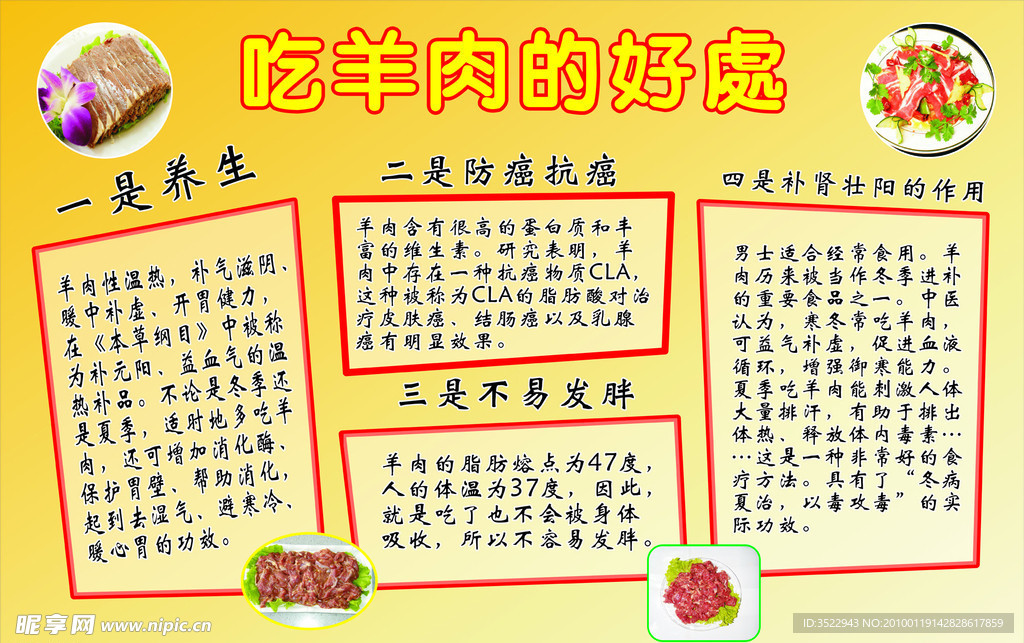 吃羊肉的好處
一是养生
羊肉性温热，补气滋阴、
暖中补虚、开胃健力，
在《本草纲目》中被称
为补元阳、益血气的温
热补品。不论是冬季还
是夏季，适时地多吃羊
肉，还可增加消化酶、
保护胃壁、帮助消化，
起到去湿气、避寒冷、
暖心胃的功效。
二是防癌抗癌
羊肉含有很高的蛋白质和丰
富的维生素。研究表明，羊
肉中存在一种抗癌物质CLA，
这种被称为CLA的脂肪酸对治
疗皮肤癌、结肠癌以及乳腺
癌有明显效果。
三是不易发胖
羊肉的脂肪熔点为47度，
人的体温为37度，因此，
就是吃了也不会被身体
吸收，所以不容易发胖。
四是补肾壮阳的作用
男士适合经常食用。羊
肉历来被当作冬季进补
的重要食品之一。中医
认为，寒冬常吃羊肉，
可益气补虚，促进血液
循环，增强御寒能力。
夏季吃羊肉能刺激人体
大量排汗，有助于排出
体热、释放体内毒素…
…这是一种非常好的食
疗方法。具有了“冬病
夏治，以毒攻毒”的实
际功效。
昵享网 www.nipic.cn
ID:3522943 NO:20100119142828617859